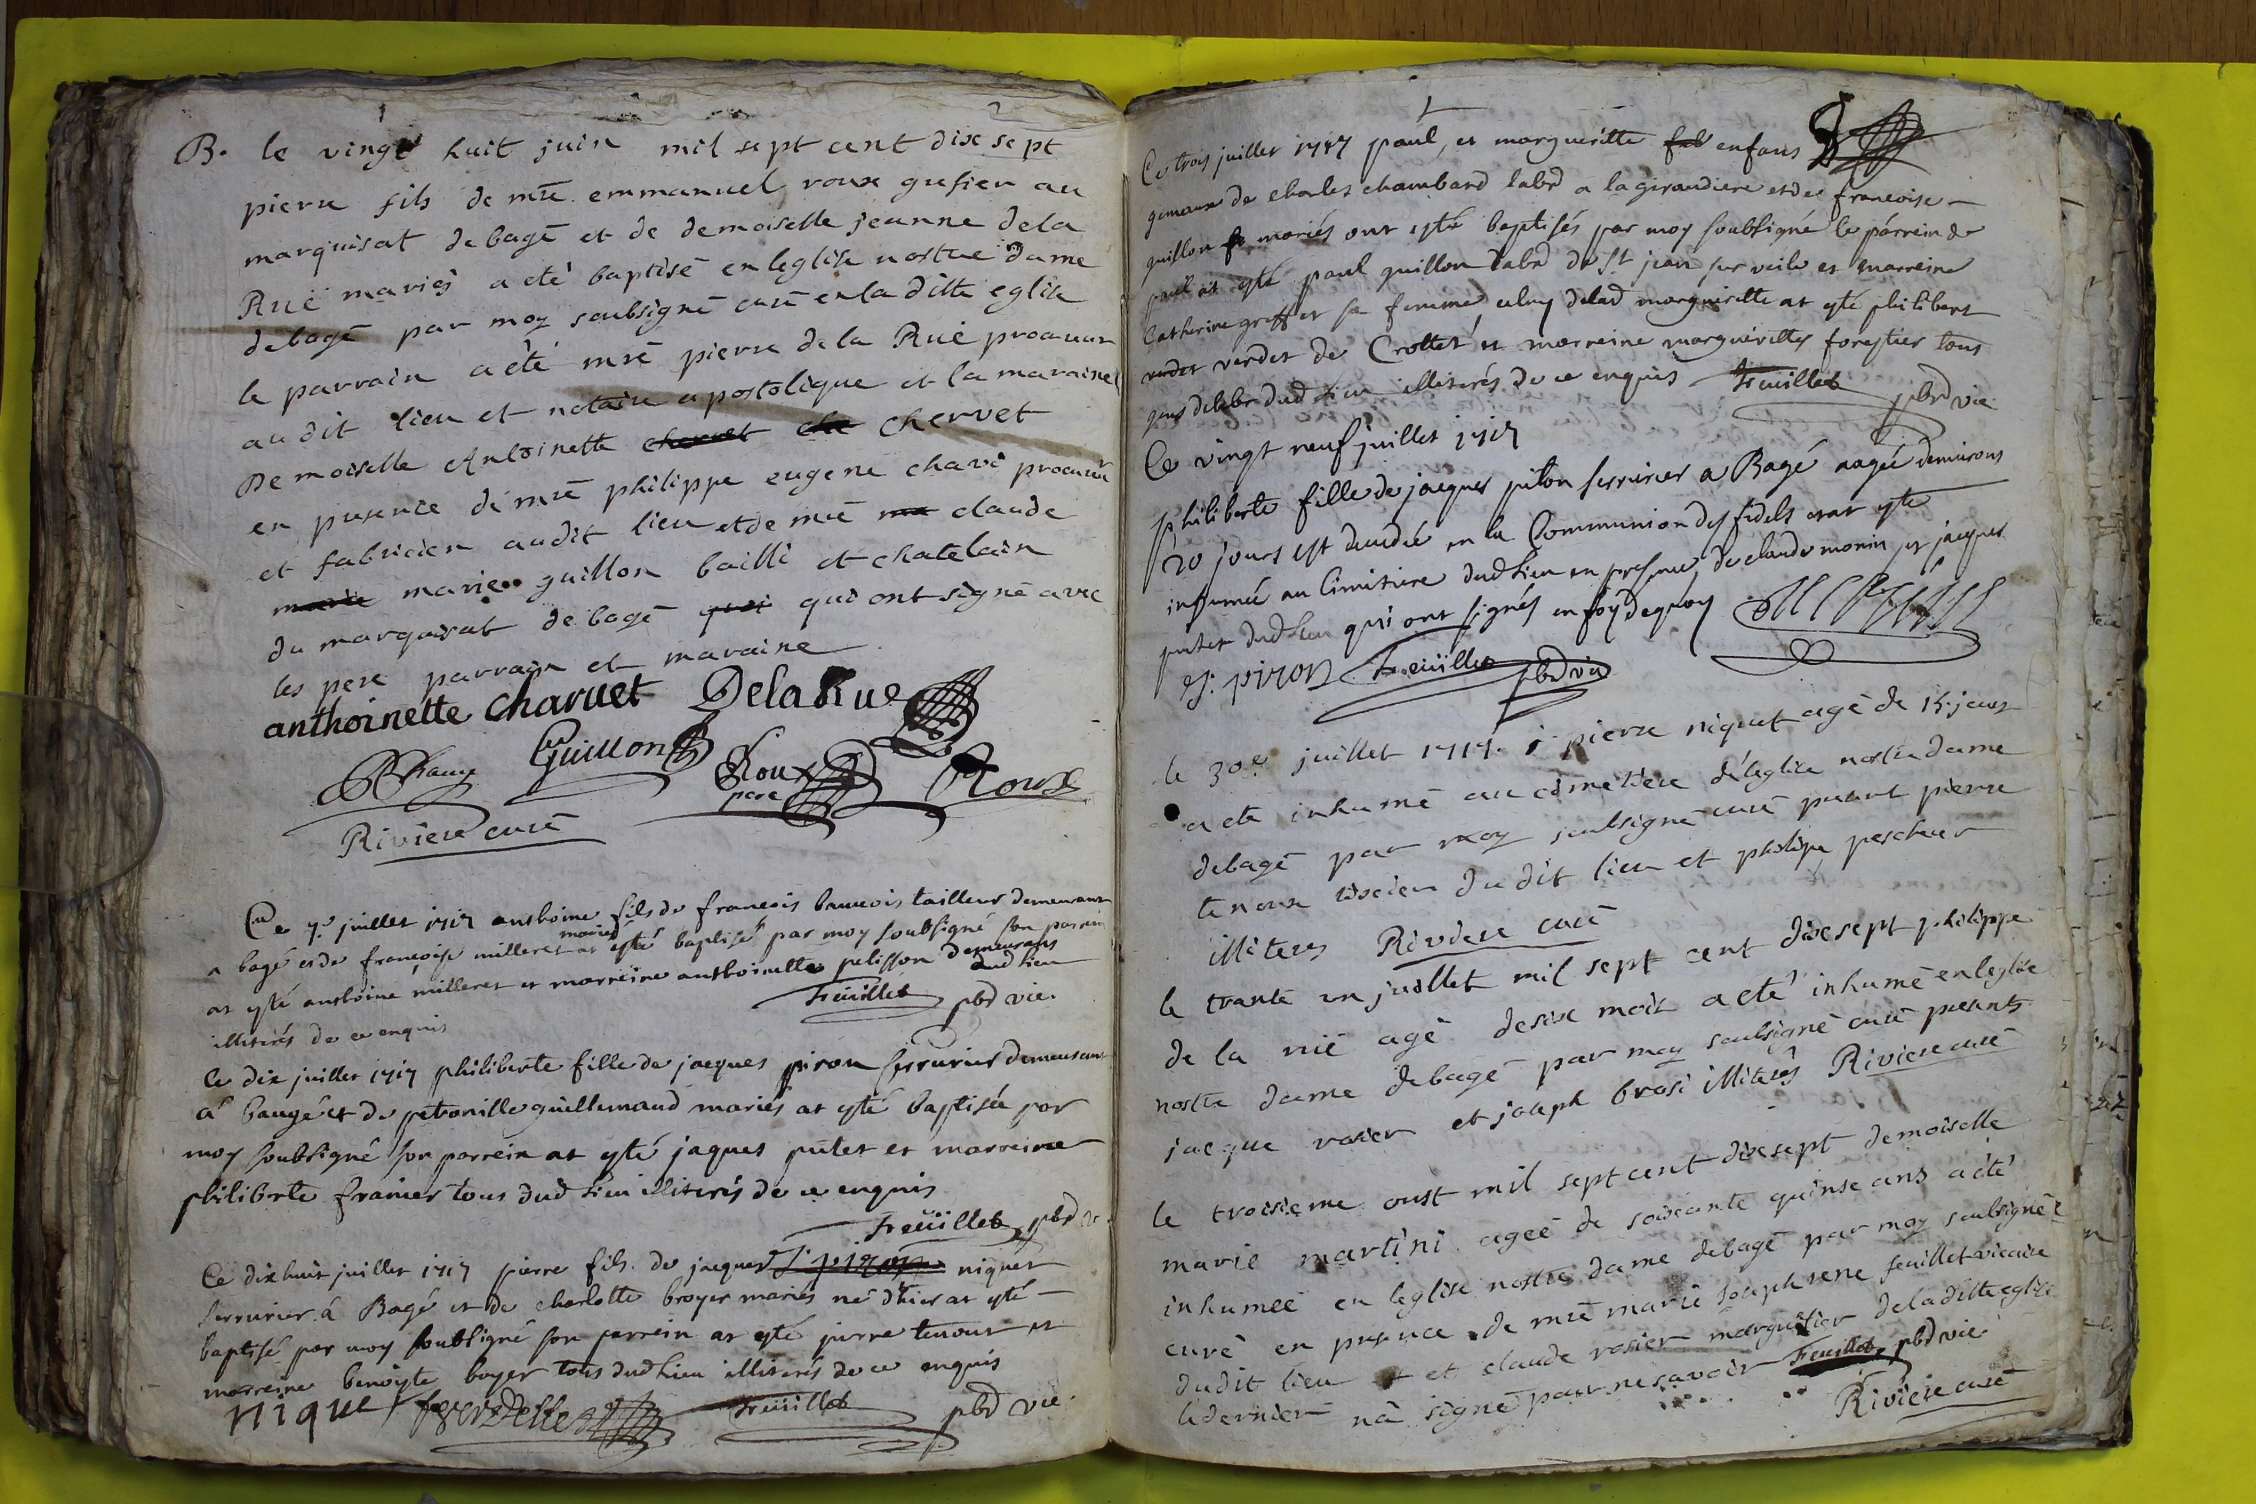 B. le vingt huit juin mil sept cent dix sept
pierre fils de mre emmanuel roux grefier au
marquisat de bagé et de demoiselle jeanne dela
Ruë mariés a eté baptisé en leglise nostre dame
debagé par moy soubsigné curé en la ditte eglise
le parrain a eté mre pierre de la Ruë procureur
au dit lieu et notaire apostolique et la maraine
Demoiselle Antoinette chervet che chervet
en presence de mre philippe eugene chavi procureur
et fabricien audit lieu et de mre claude
marie marie guillon bailli et chatelain
du marquisat de bagé qui qui ont signé avec
les pere parrain et maraine
anthoinette charvet DelaRue
Guillon Roux pere Roux
Riviere curé
Ce 7e juillet 1717 anthoine fils de francois tailleur demeurant
a bagé et de françoise milleret mariés at esté baptisé par moy soubsigné son parrein
at esté anthoine milleret et marreine anthoinette pelisson demeurans dud lieu
illiterés de ce enquis Feüillet pbr vic.
Ce dix juillet 1717 philiberte fille de jacques piron serrurier demeurant
à baugé et de petronille guillemaud mariés at esté baptisée par
moy soubsigné son parrein at esté jaques putet et marreine
philiberte frainier tous dud lieu illiterés de ce enquis
Feüillet pbr v.
Ce dixhuit juillet 1717 pierre fils de jacques J. piron niquet
serrurier à Bagé et de charlotte broyer mariés né d'hier at esté
baptisé par moy soubsigné son parrein at esté pierre tenour et
marreine benoiste boyer tous dud lieu illiterés de ce enquis
niquet Feüillet pbr vic.
Ce trois juillet 1717 paul, et margueritte enfans
gemeaux de charles chambard labr a la giraudiere et de francoise
guillon mariés ont esté baptisés par moy soubsigné le parrein de
paul at esté paul guillon labr de St jean sur veile et marreine
Catherine greffet sa femme celuy de lad margueritte at esté philibert
verdet verdet de Crottet et marreine marguerittes forestier tous
gens de labr dud lieu illiterés de ce enquis Feuillet pbr vic.
Ce vingt neuf juillet 1717
philiberte fille de jacques piton serrurier a Bagé aagée denvirons
20 jours est decedée en la Communion des fidels et at esté
inhumée au Cimitiere dud lieu en presence de claude monin et jacques
putet dud lieu qui ont signés en foy de quoy
J. piron Feüillet pbr vic
le 30e juillet 1717. pierre niquet agé de 15 jours
a eté inhumé au cimetiere de leglise nostre dame
debagé par moy soubsigné curé present pierre
tenoux du dit lieu et philipe pescheur
illiteres Riviere curé
le trante un juillet mil sept cent dixsept philippe
de la ruë agé desix mois a eté inhumé en leglise
nostre dame debagé par moy soubsigné curé presents
jacque rosier et joseph brosi illiterés Riviere curé
le troisieme oust mil sept cent dixsept demoiselle
marie martini ageé de soixante quinse ans a eté
inhumeé en leglise nostre dame debagé par moy soubsigné
curé en presence de mre marie Joseph rene feuillet vicaire
dudit lieu et claude rosier marguillier dela ditte eglise
le dernier n'a signé pour ne savoir Feuillet pbr vic.
Riviere curé